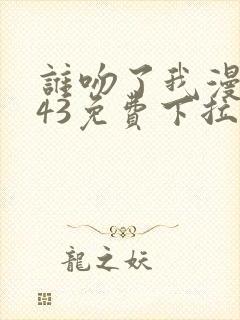 誰吻了我漫
43免費下拉
龍之妖